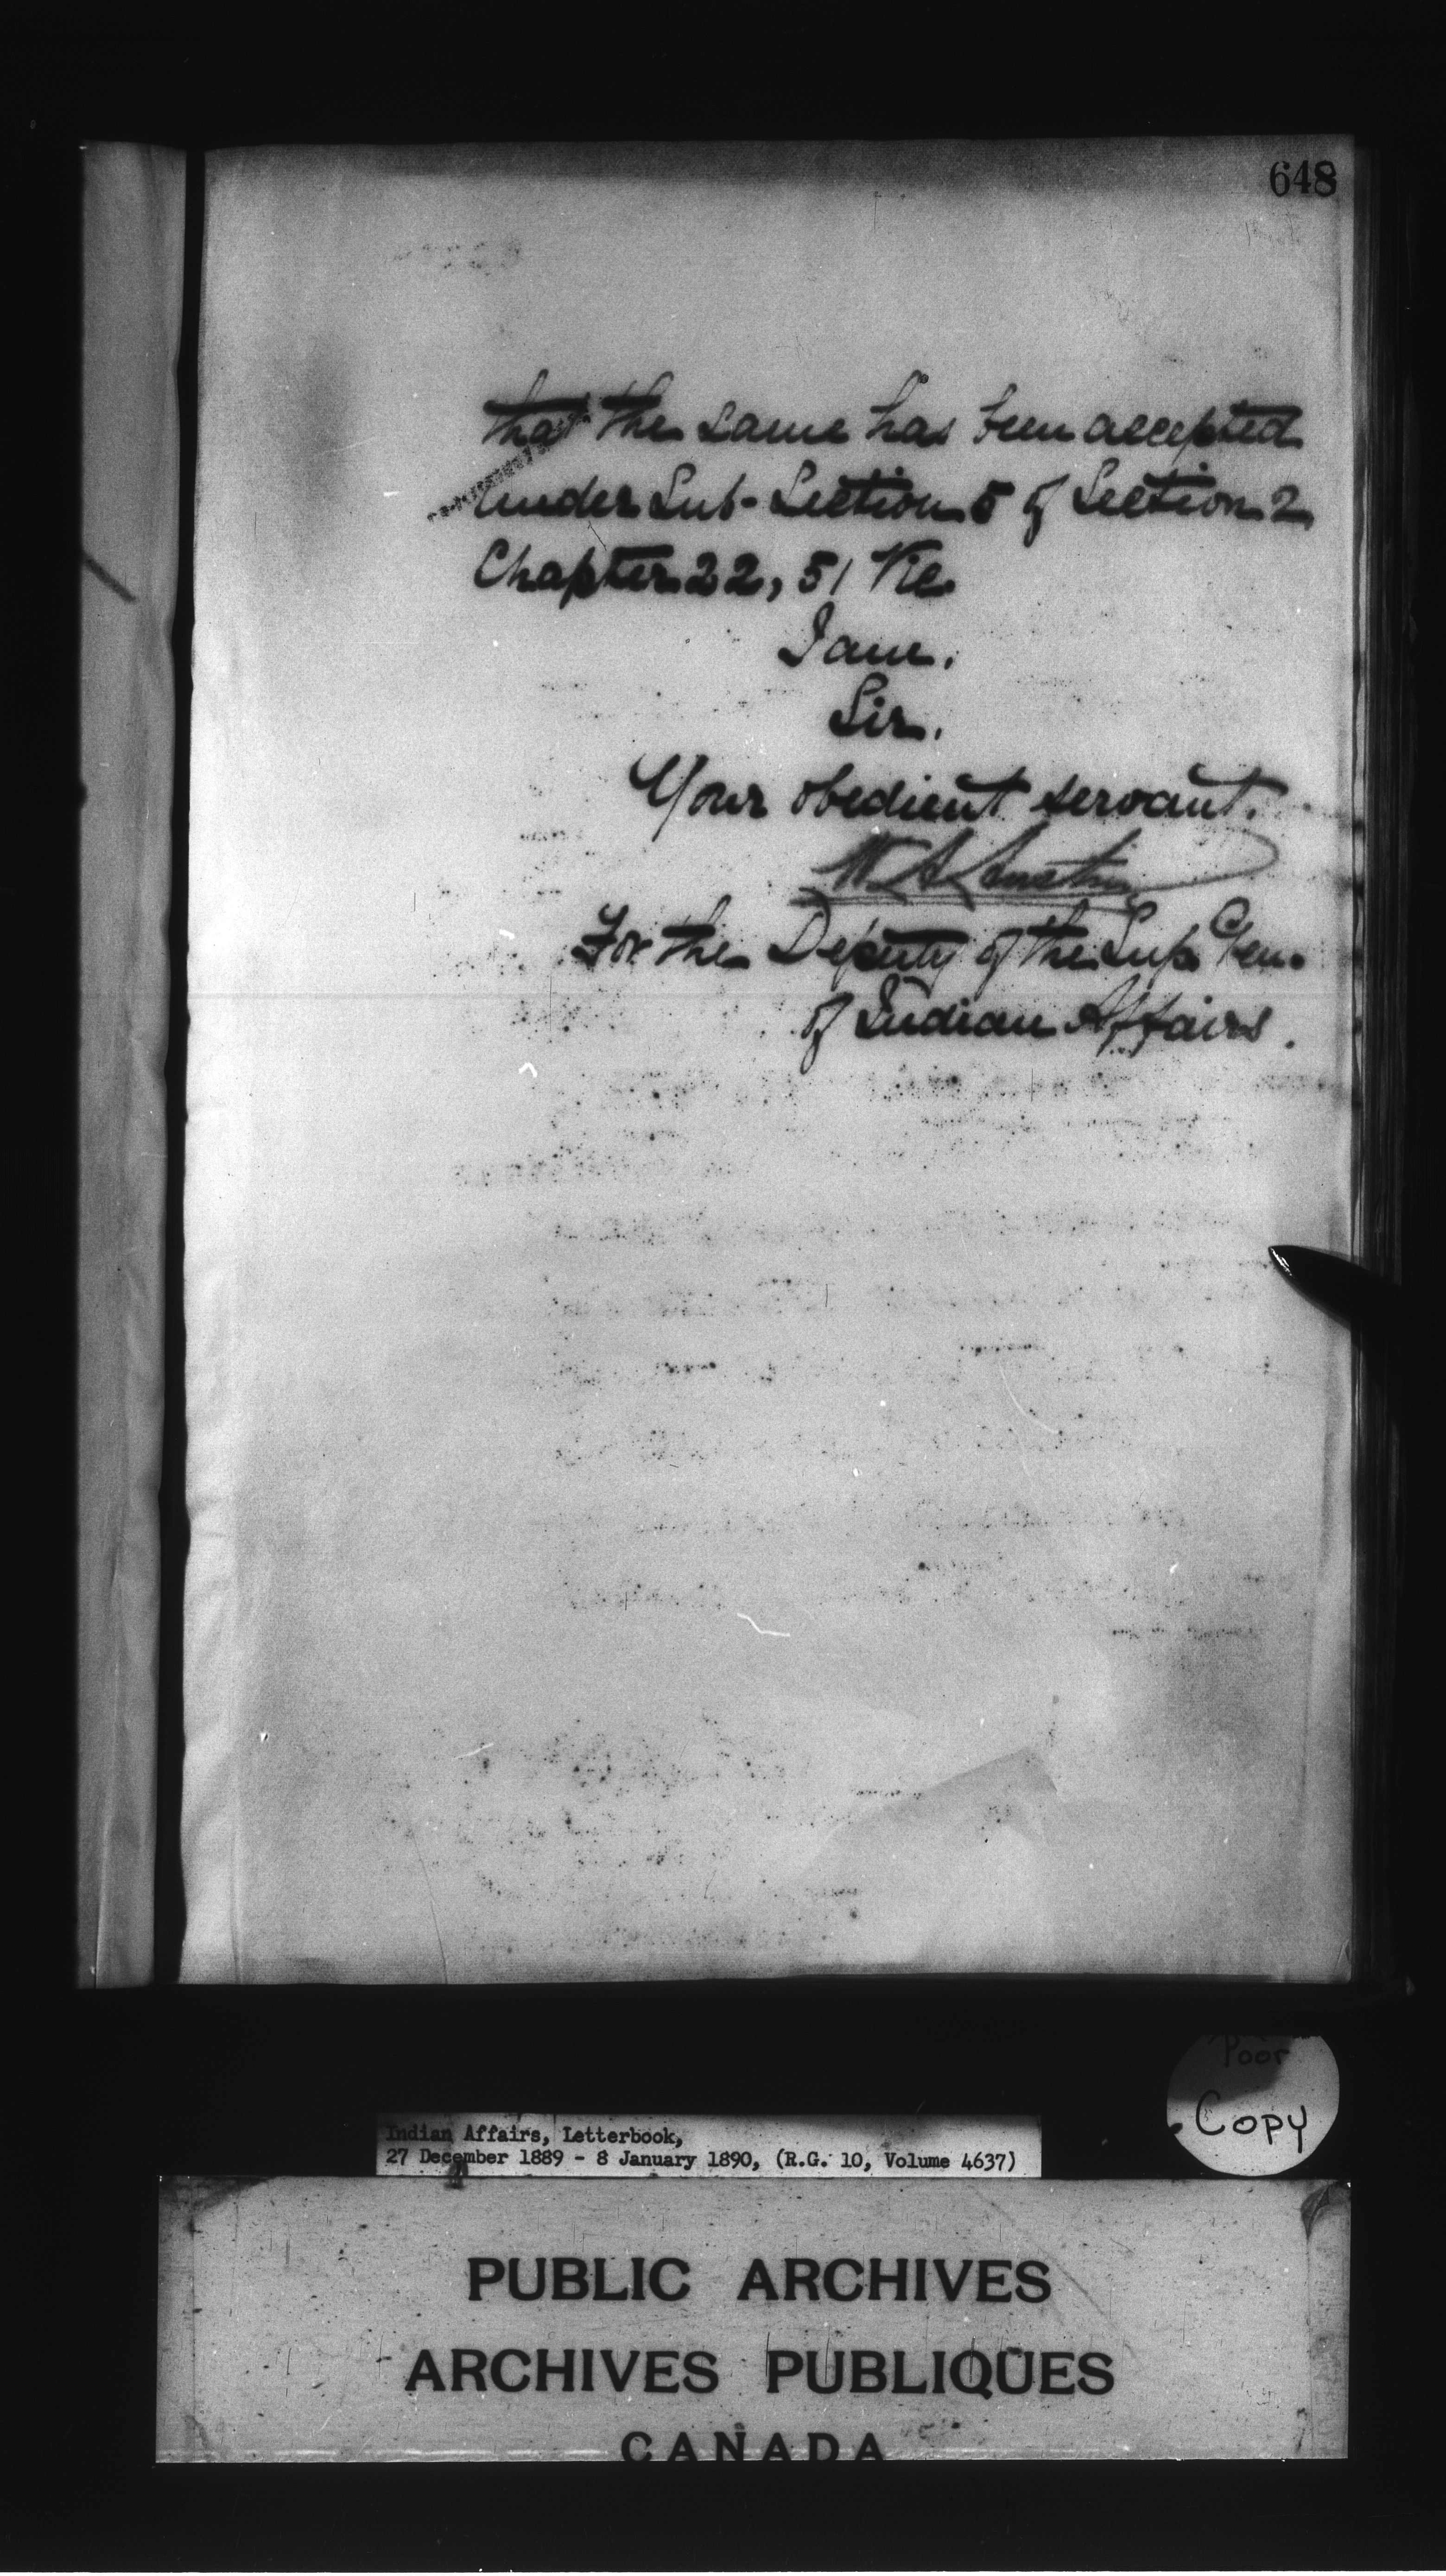 648
that the same has been accepted
under Sub-Section 5 of Section 2
Chapter 22, 51 Vic.
I am,
Sir,
Your obedient servant.
W A Austin
For the Deputy of the Sup. Gen.
of Indian Affairs.
Poor
Copy
Indian Affairs, Letterbook,
27 December 1889 - 8 January 1890, (R.G. 10, Volume 4637)
PUBLIC ARCHIVES
ARCHIVES PUBLIQUES
CANADA